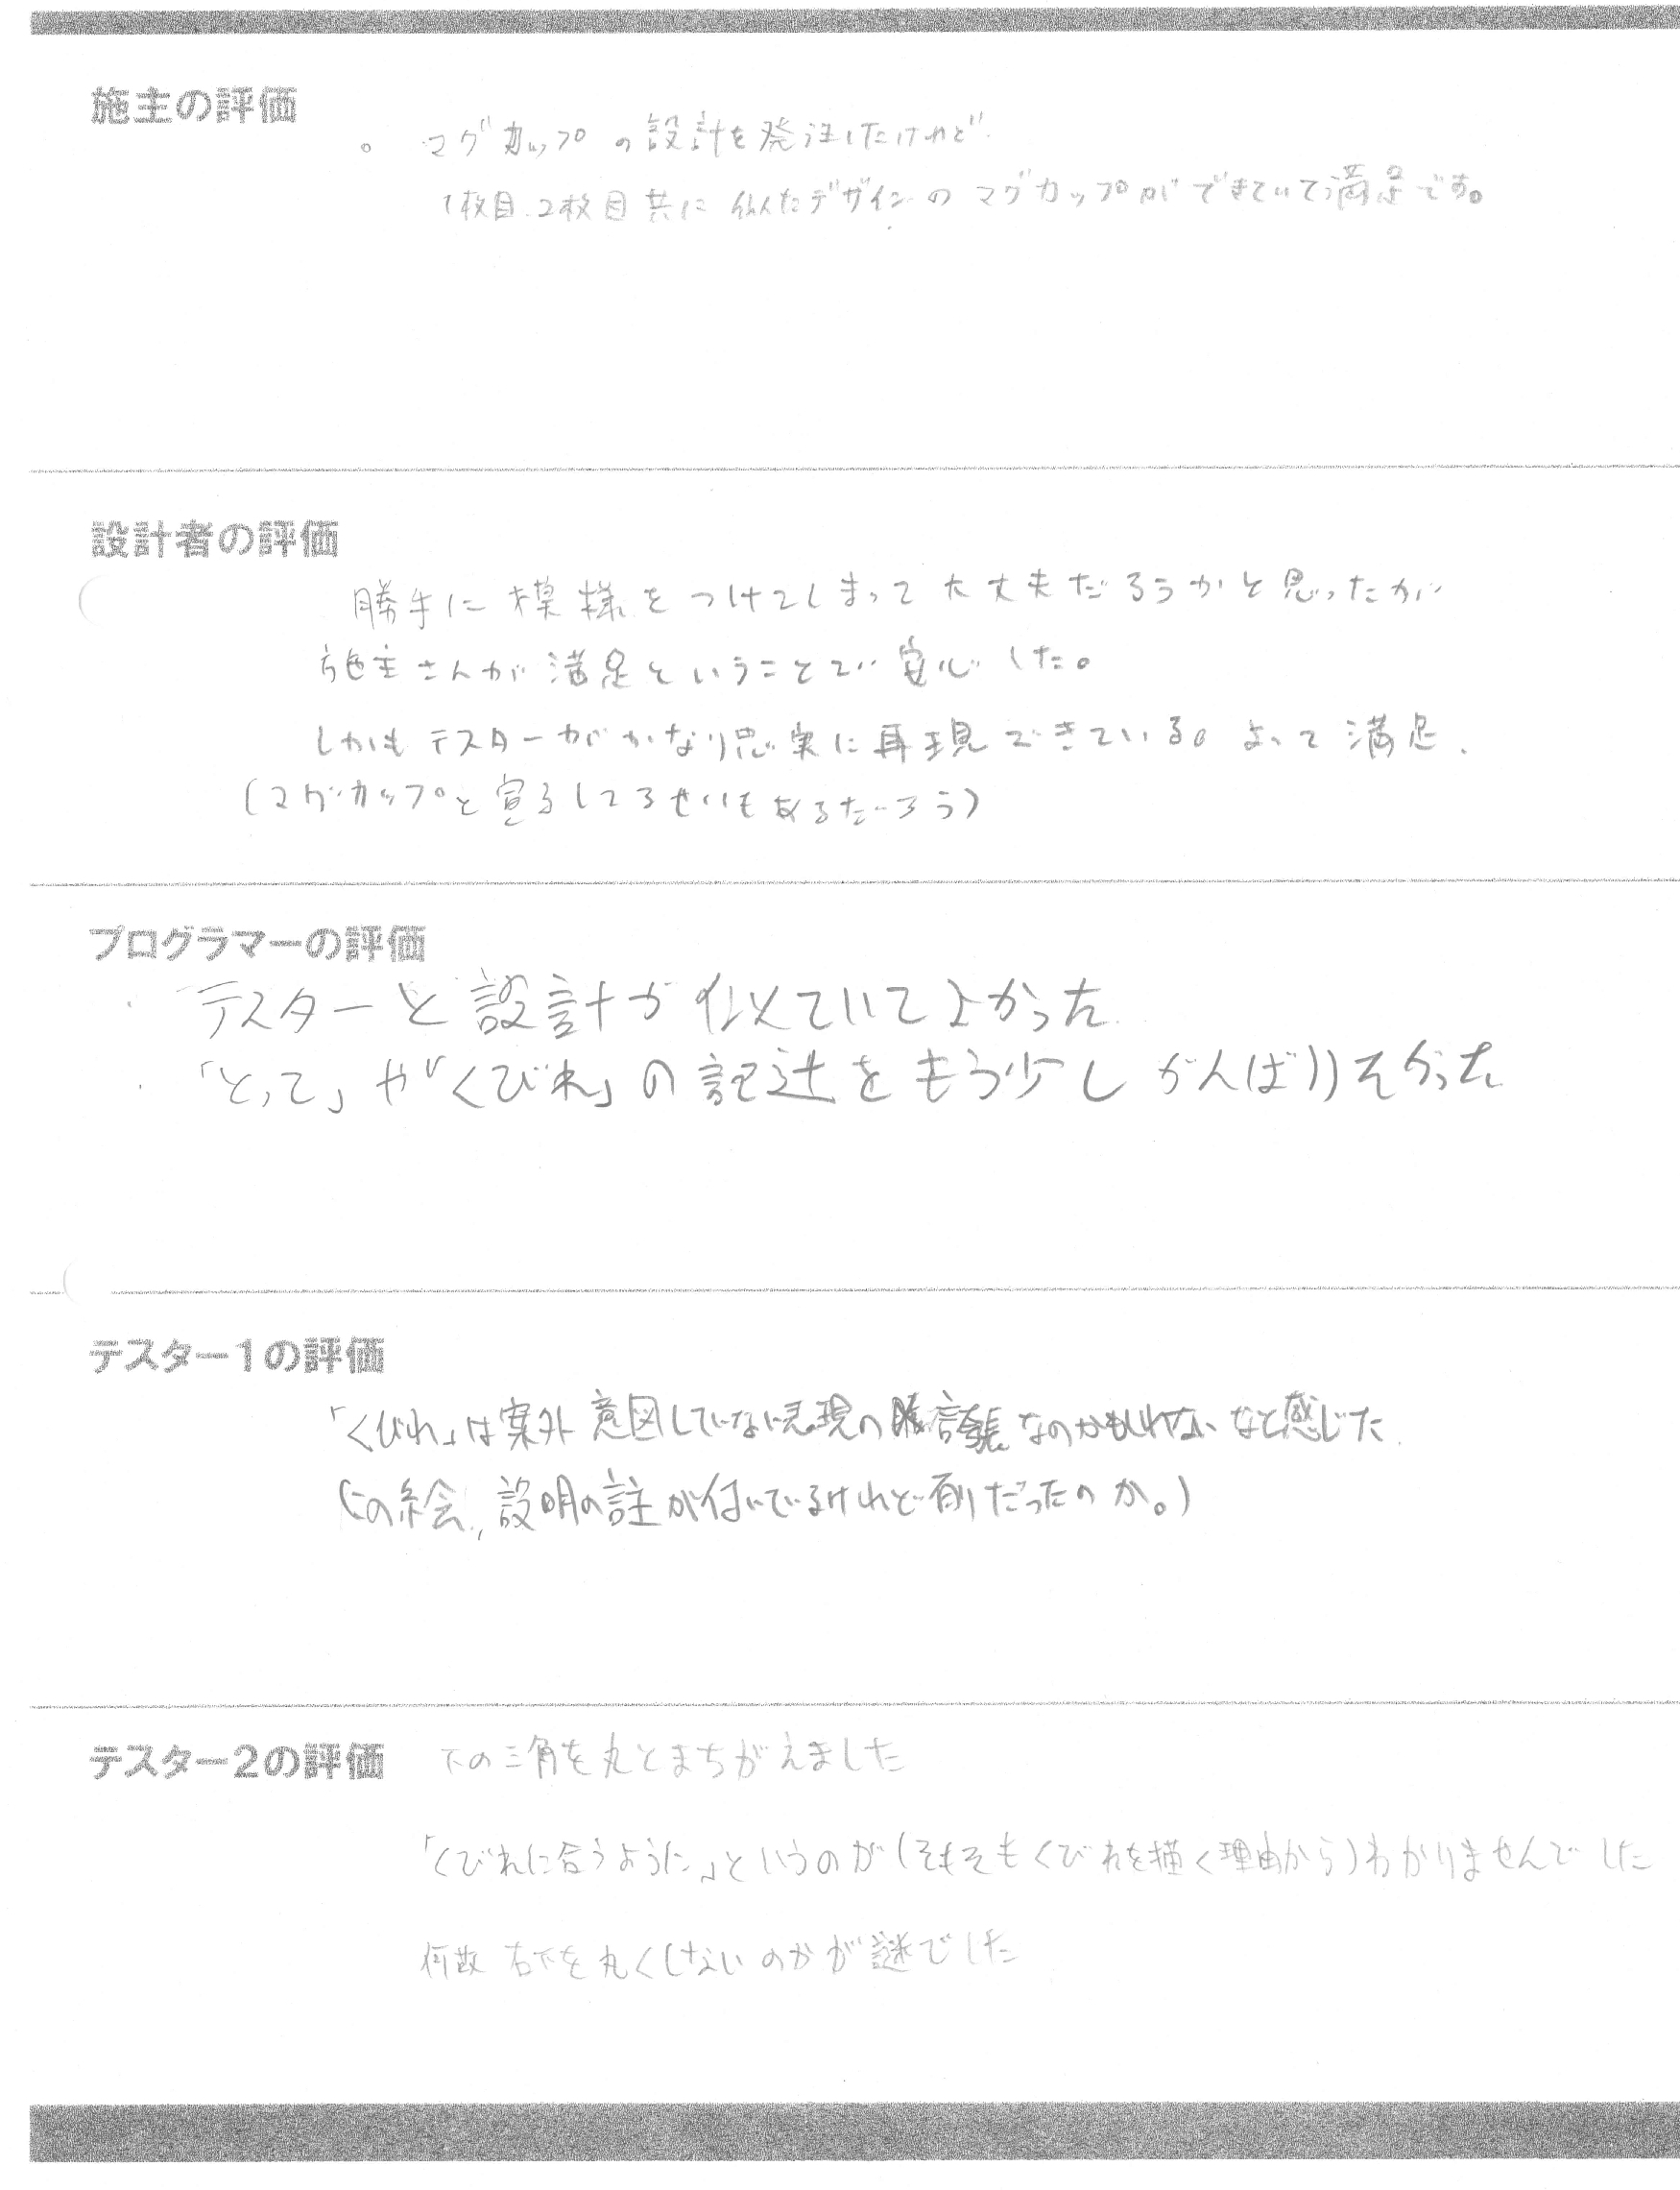 施主の評価
。マグカップの設計を発注したけれど
1枚目、2枚目共に似たデザインのマグカップができていて満足です。
設計者の評価
勝手に模様をつけてしまって大丈夫だろうかと思ったが
施主さんが満足ということで安心した。
しかもテスターがかなり忠実に再現できている。よって満足.
(マグカップと宣言してるせいもあるだろう)
プログラマーの評価
・テスターと設計が似ていてよかった
・「とって」や「くびれ」の記述をもう少しがんばりたかった
テスター1の評価
「くびれ」は案外意図していない表現の誇張なのかもしれないなと感じた.
(この絵、説明の註が付いているけれど有りだったのか。)
テスター2の評価 下の三角を丸とまちがえました
「くびれに合うように」というのが(そもそもくびれを描く理由から)わかりませんでした
何故右下を丸くしないのかが謎でした